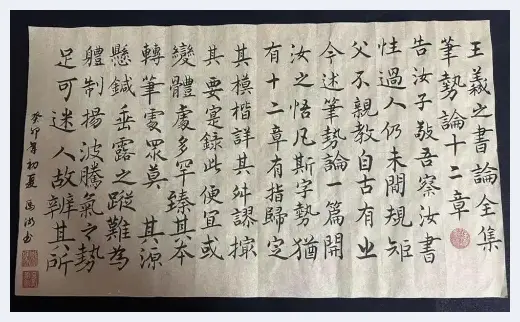 王羲之書論全集
筆勢論十二章
告汝子敬吾察汝書
性過人仍未閑規矩
父不親教自古有㞢
今述筆勢論一篇開
汝之悟凡斯字勢猶
有十二章有指歸定
其模楷詳其舛謬撮
其要寔錄此便宜或
變體處多罕臻其本
轉筆處眾莫 其源
懸鍼垂露之蹤難為
軆制揚波騰氣之勢
足可迷人故辨其所
癸卯年初夏